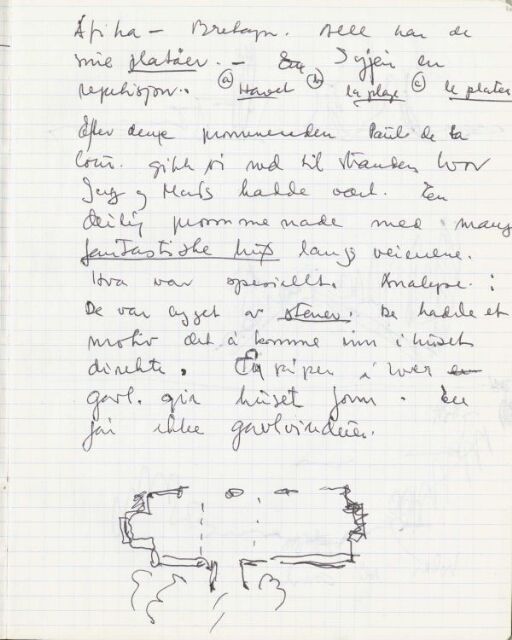 Afrika — Bretagn. Alle har de
mie platåer. — En Igjen en
repetisjon. (a) Havet (b) la plage (c) le plateau
Efter denne promenaden Paul de la
Cour. gikk vi ned til stranden hvor
Jerg og Mads hadde vært. En
deilig prommenade med mange
fantastiske hus langs veiene.
Hva var spesiellt. Analyse. :
De var bygget av stener. De hadde et
motiv det å komme inn i huset
direkte. En i hver en
gavl. gir huset form. En
får ikke gavlvinduer.